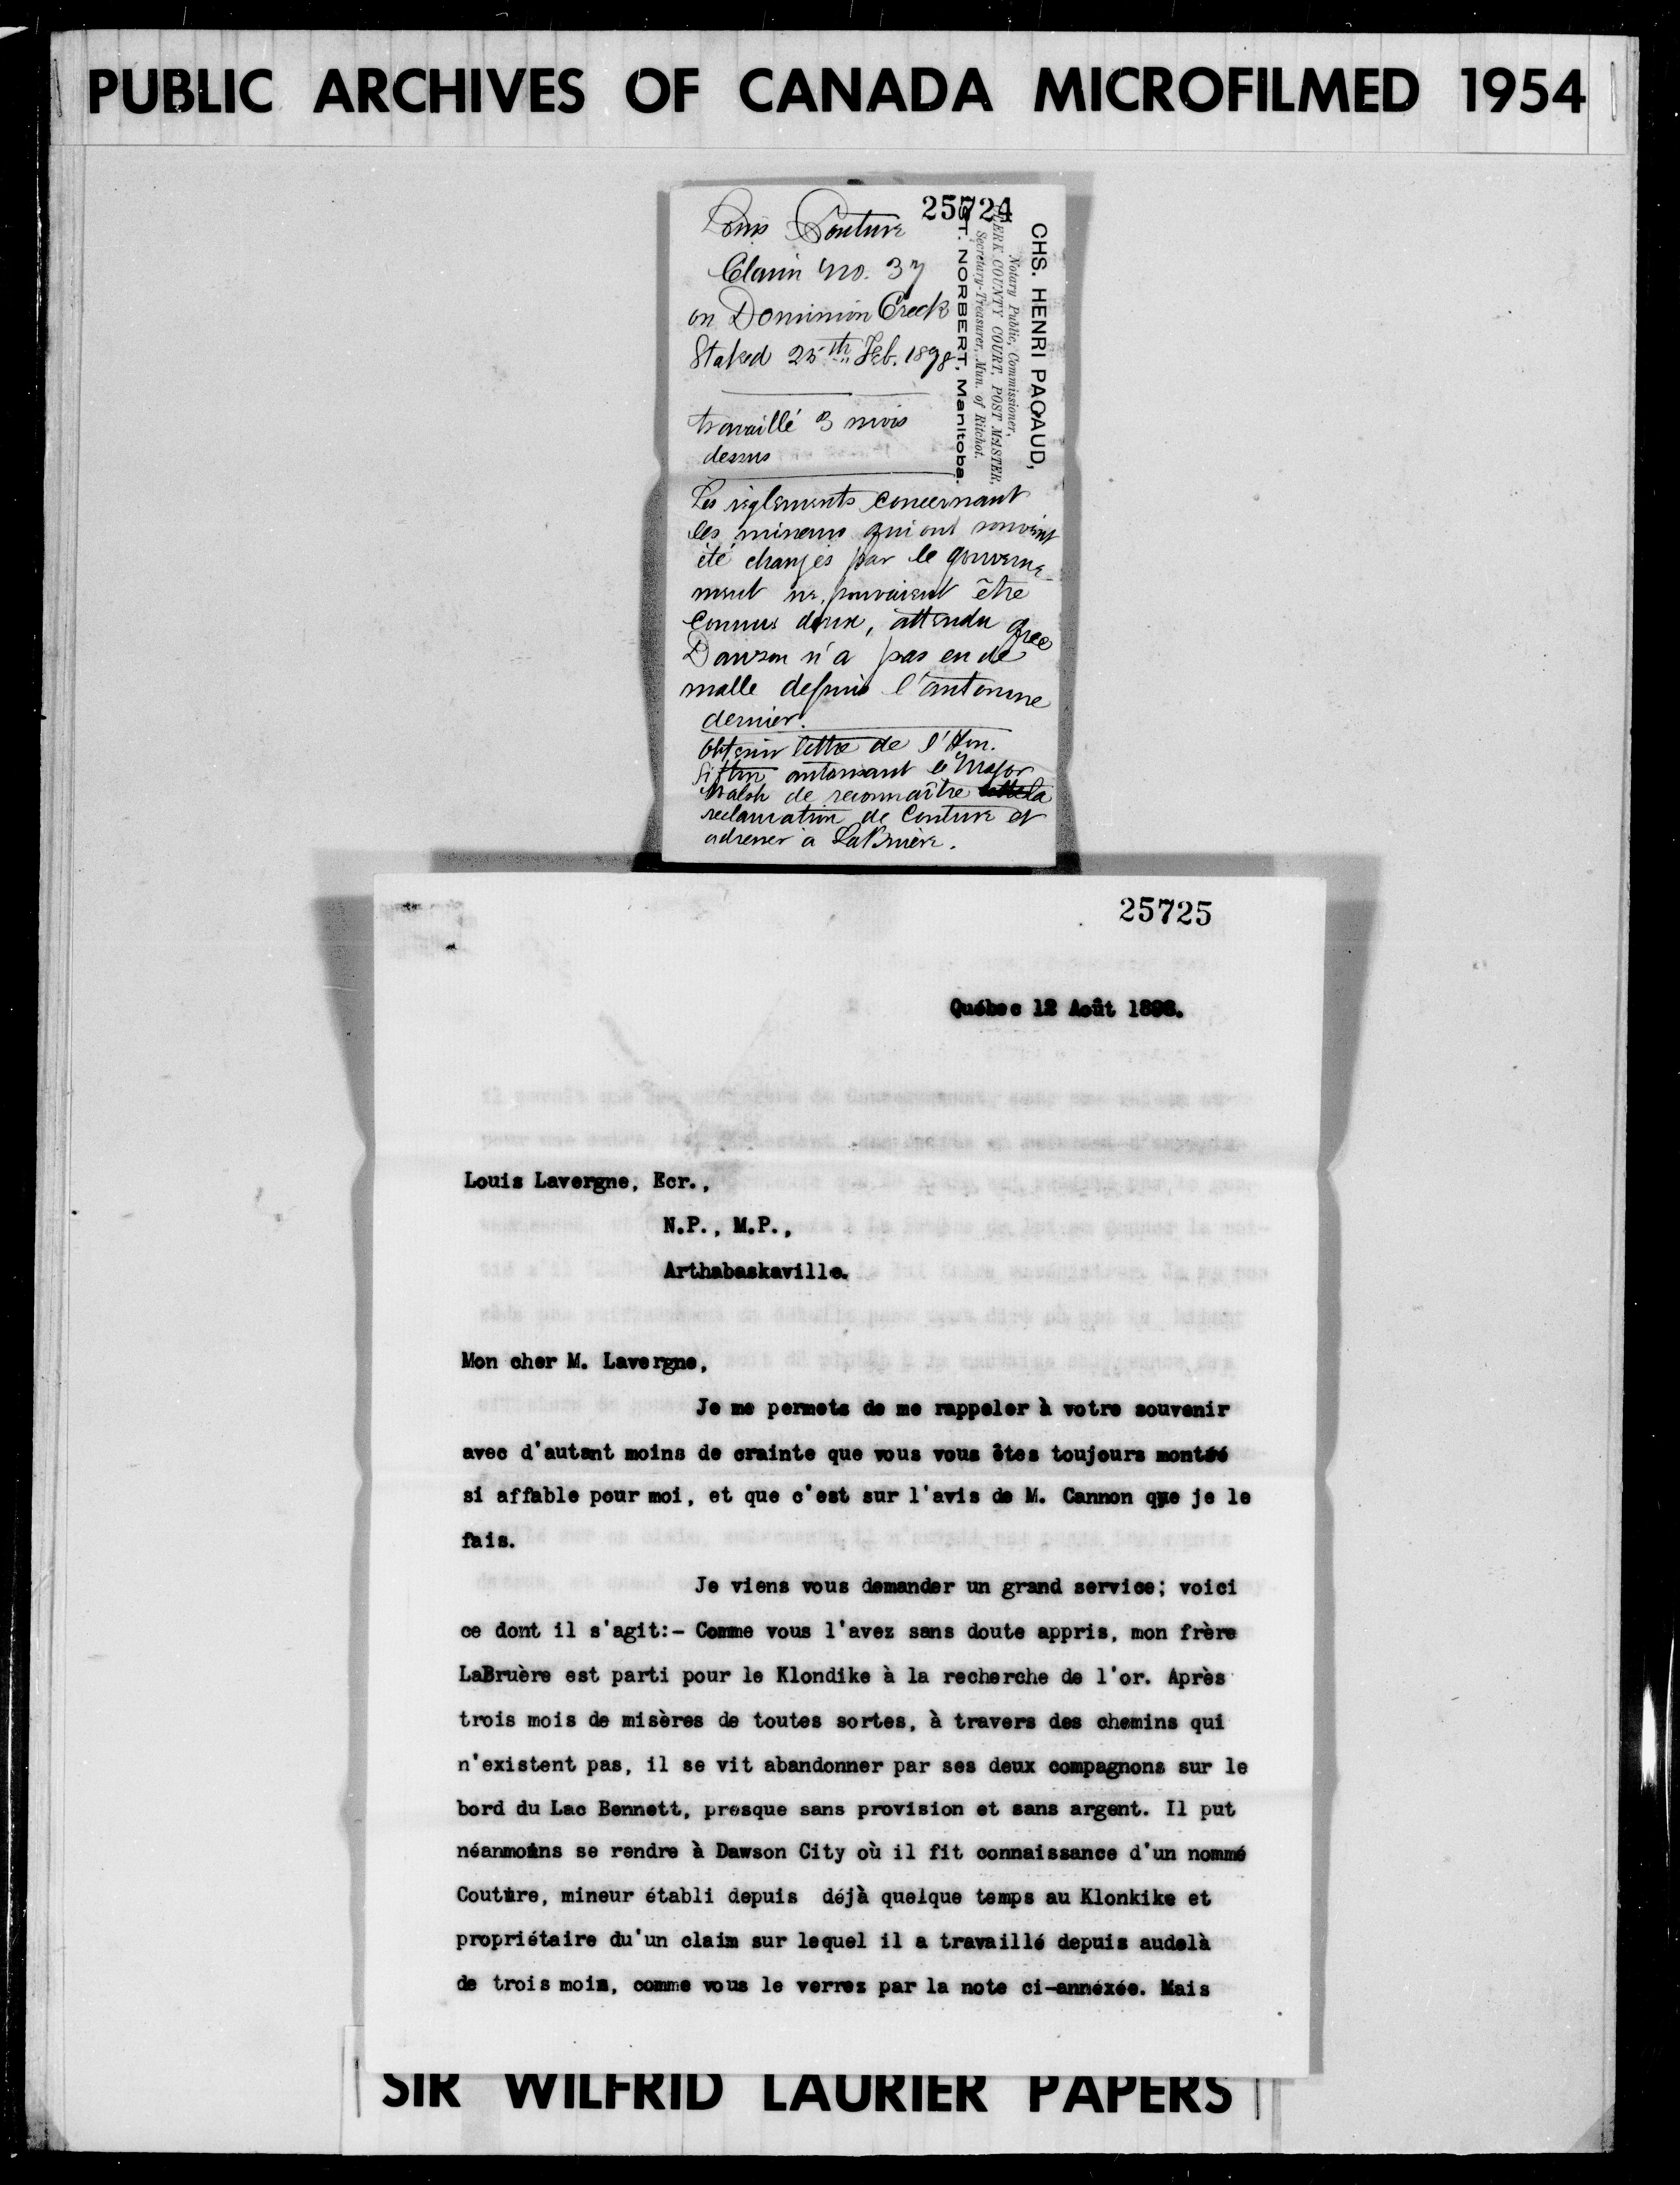 PUBLIC ARCHIVES OF CANADA MICROFILMED 1954
25724
CHS. HENRI PAQAUD,
Notary Public, Commissioner,
CLERK COUNTY COURT, POST MASTER,
Secretary-Treasurer, Mun. of Ritchot.
ST. NORBERT, Manitoba.
Louis Couture
Claim No. 37
on Dominion Creek
Staked 25th Feb. 1898
travaillé 3 mois
dessus
Les règlements concernant
les mineurs qui ont souvent
été changés par le gouverne-
ment ne pouvaient être
connus d'eux, attendu que
Dawson n'a pas eu de
malle depuis l'automne
dernier.
Obtenir lettre de l'Hon.
Sifton autorisant le Major
Walsh de reconnaître la
reclamation de Couture et
adresser à LaBruère.
25725
Québec 12 Août 1898.
Louis Lavergne, Ecr.,
N.P., M.P.,
Arthabaskaville.
Mon cher M. Lavergne,
Je me permets de me rappeler à votre souvenir
avec d'autant moins de crainte que vous vous êtes toujours montré
si affable pour moi, et que c'est sur l'avis de M. Cannon que je le
fais.
Je viens vous demander un grand service; voici
ce dont il s'agit:- Comme vous l'avez sans doute appris, mon frère
LaBruère est parti pour le Klondike à la recherche de l'or. Après
trois mois de misères de toutes sortes, à travers des chemins qui
n'existent pas, il se vit abandonner par ses deux compagnons sur le
bord du Lac Bennett, presque sans provision et sans argent. Il put
néanmoins se rendre à Dawson City où il fit connaissance d'un nommé
Couture, mineur établi depuis déjà quelque temps au Klonkike et
propriétaire du'un claim sur lequel il a travaillé depuis audelà
de trois mois, comme vous le verrez par la note ci-annéxée. Mais
SIR WILFRID LAURIER PAPERS